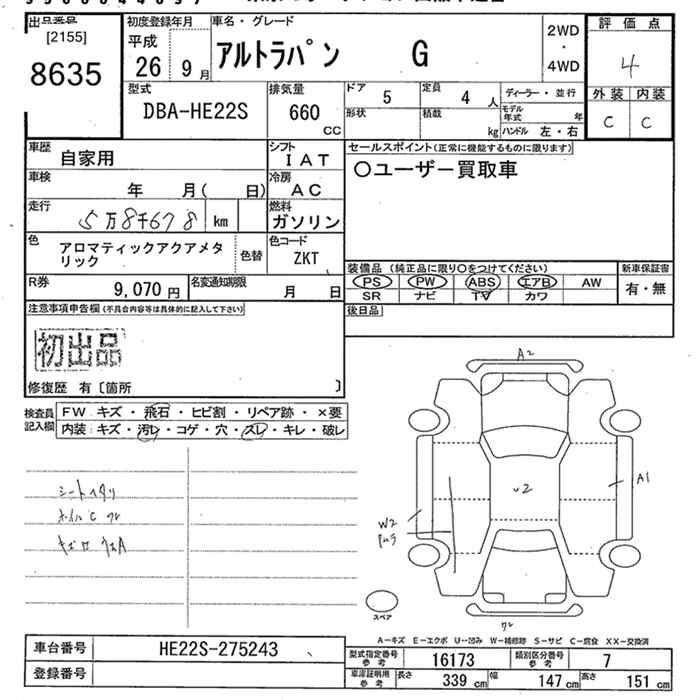 出品番号
[2155]
8635
初度登録年月
平成
26 9月
車名・グレード
アルトラパン G
2WD
・
4WD
評価点
4
外装 内装
C C
型式
DBA-HE22S
排気量
660
CC
ドア 5
定員 4 人
形状
積載 kg
ディーラー・並行
モデル年式 年
ハンドル 左・右
車歴 自家用
シフト
IAT
セールスポイント(正常に機能するものに限ります)
○ユーザー買取車
車検 年 月( 日)
冷房
AC
走行 5万8千678 km
燃料
ガソリン
色 アロマティックアクアメタリック
色替
色コード
ZKT
装備品(純正品に限り○をつけてください)
PS PW ABS エアB AW
SR ナビ TV カワ
新車保証書
有・無
R券 9,070円
名変通知期限 月 日
後日品
注意事項申告欄(不具合内容等は具体的に記入して下さい)
初出品
修復歴 有〔箇所 〕
検査員記入欄
FW キズ・飛石・ヒビ割・リペア跡・×要
内装:キズ・汚レ・コゲ・穴・スレ・キレ・破レ
A2
U2
A1
W2
スペア
A−キズ E−エクボ U−凹み W−補修跡 S−サビ C−腐食 XX−交換済
車台番号 HE22S-275243
登録番号
型式指定番号参考 16173
類別区分番号参考 7
車庫証明用参考 長さ 339cm 幅 147cm 高さ 151cm